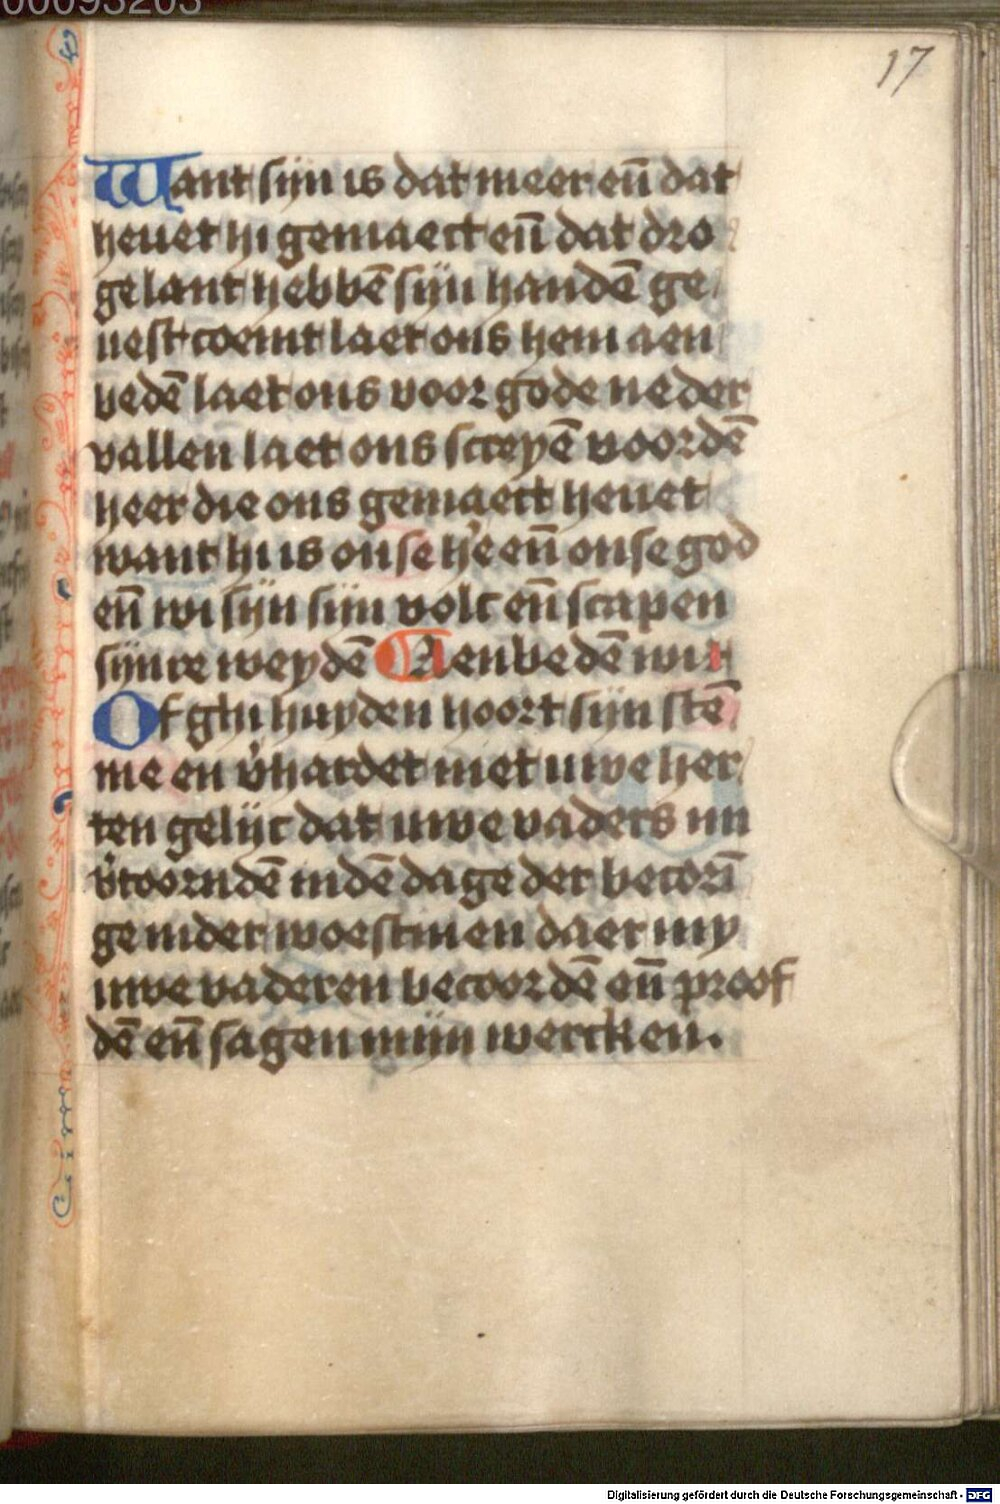 00093203
17
Want sijn is dat meer en̄ dat
heuet hi gemaect en̄ dat dro
ge lant hebbē sijn handē ge
uest coemt laet ons hem aen
bedē laet ons voor gode neder
vallen laet ons screyē voor dē
heer die ons gemaect heuet
want hi is onse h̓e en̄ onse god
en̄ wi sijn sijn volc en̄ scapen
sijnre weydē Aenbedē wi
Of ghi huyden hoort sijn stē
me en v̓hardet niet uwe her
ten gelijc dat uwe vaders mi
v̓toorndē in dē dage der becorī
ge in der woestinen daer my
uwe vaderen becoordē en̄ proef
dē en̄ sagen mijn wercken.
Digitalisierung gefördert durch die Deutsche Forschungsgemeinschaft - DFG